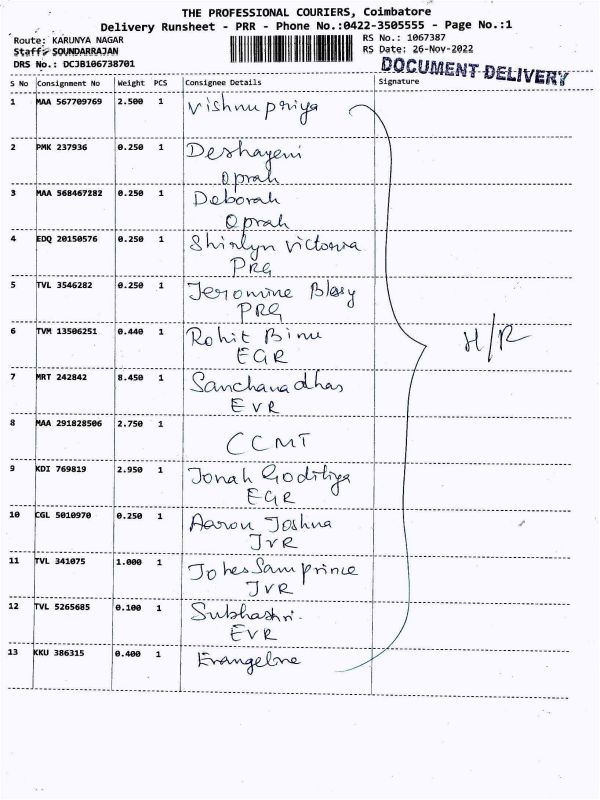 THE PROFESSIONAL COURIERS, Coimbatore
Delivery Runsheet - PRR - Phone No.:0422-3505555 - Page No.:1
Route: KARUNYA NAGAR
RS No.: 1067387
Staff: SOUNDARRAJAN
RS Date: 26-Nov-2022
DRS No.: DCJB106738701
DOCUMENT DELIVERY
S No Consignment No Weight PCS Consignee Details Signature
1 MAA 567709769 2.500 1 Vishnupriya
2 PMK 237936 0.250 1 Deshayeni
Oprah
3 MAA 568467282 0.250 1 Deborah
Oprah
4 EDQ 20150576 0.250 1 Shirlyn Victoria
PRG
5 TVL 3546282 0.250 1 Jeromine Blessy
PRG
6 TVM 13506251 0.440 1 Rohit Binu
EGR
H/R
7 MRT 242842 8.450 1 Sanchanadhas
EVR
8 MAA 291828506 2.750 1
CCMT
9 KDI 769819 2.950 1 Jonah
EGR
10 CGL 5010970 0.250 1 Aaron Joshua
JVR
11 TVL 341075 1.000 1 Jobes Sam prince
JVR
12 TVL 5265685 0.100 1 Subhashri.
EVR
13 KKU 386315 0.400 1 Evangeline